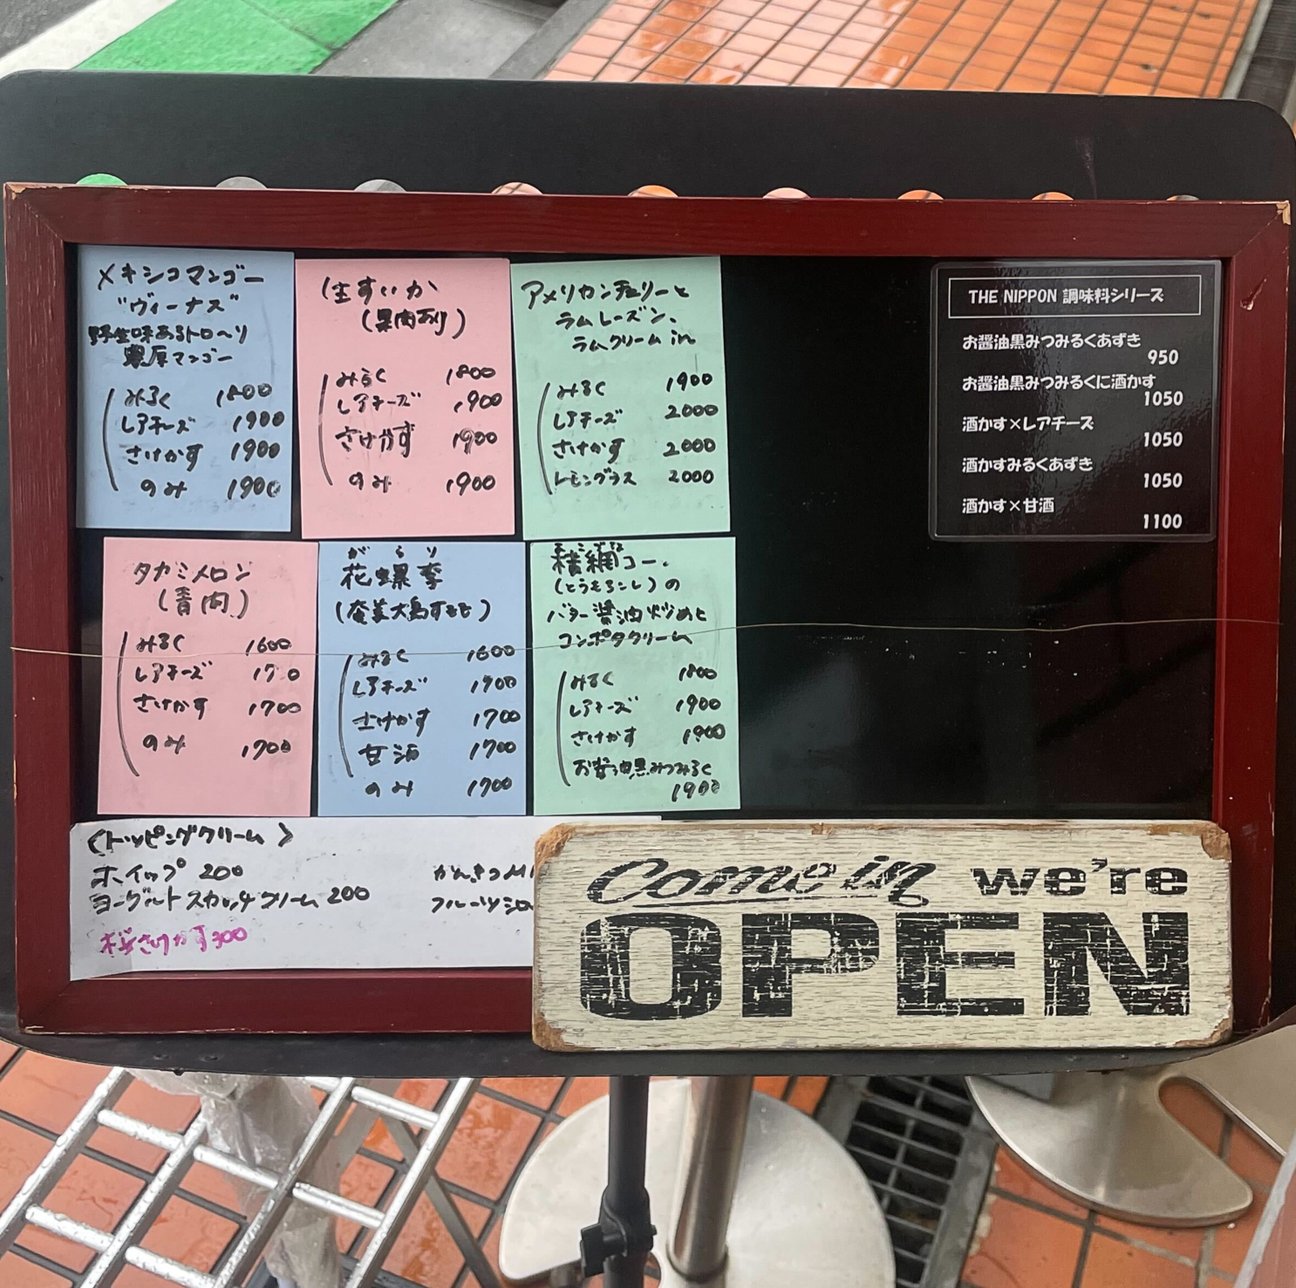 メキシコマンゴー
"ヴィーナス"
野生味あるトロ〜リ
濃厚マンゴー
みるく 1800
レアチーズ 1900
さけかす 1900
のみ 1900
生すいか
(果肉あり)
みるく 1800
レアチーズ 1900
さけかす 1900
のみ 1900
アメリカンチェリーと
ラムレーズン、
ラムクリーム in
みるく 1900
レアチーズ 2000
さけかす 2000
レモングラス 2000
THE NIPPON 調味料シリーズ
お醤油黒みつみるくあずき
950
お醤油黒みつみるくに酒かす
1050
酒かす×レアチーズ
1050
酒かすみるくあずき
1050
酒かす×甘酒
1100
タカミメロン
(青肉)
みるく 1600
レアチーズ
さけかす 1700
のみ 1700
がらり
花螺李
(奄美大島すもも)
みるく 1600
レアチーズ 1700
さけかす 1700
甘酒 1700
のみ 1700
コー、
(とうもろこし)の
バター醤油炒めと
コンポタクリーム
みるく 1800
レアチーズ 1900
さけかす 1900
お醤油黒みつみるく
1900
〈トッピングクリーム〉
ホイップ 200
ヨーグルトスカッチクリーム 200
桜さけかす300
かんきつ
フルーツシロ
Come in we're
OPEN